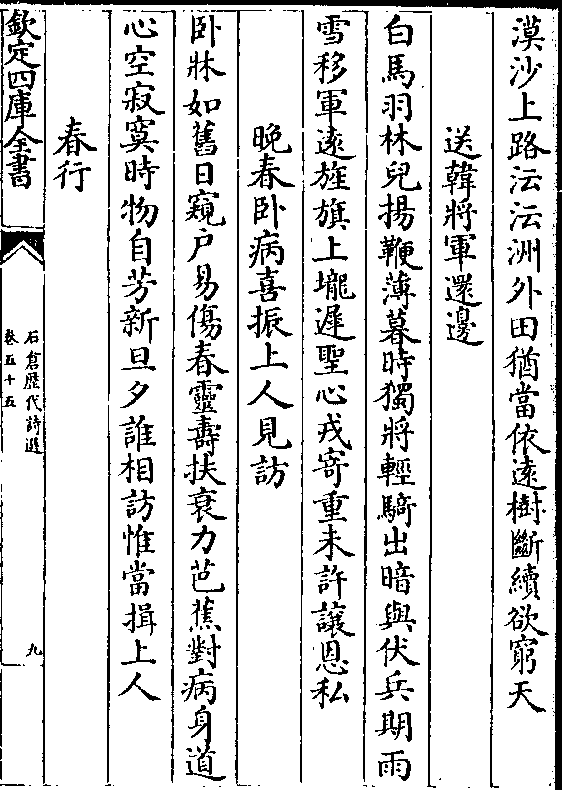 漠沙上路沄沄洲外田猶當依遠樹斷續欲窮天
送韓將軍還邊
白馬羽林兒揚鞭薄暮時獨將輕騎出暗與伏兵期雨
雪移軍遠旌旗上壠遲聖心戎寄重未許讓恩私
晚春卧病喜振上人見訪
卧牀如舊日窺户易傷春靈壽扶衰力芭蕉對病身道
心空寂寞時物自芳新旦夕誰相訪惟當揖上人
春行
欽定四庫全書
石倉歷代詩選
卷五十五
九